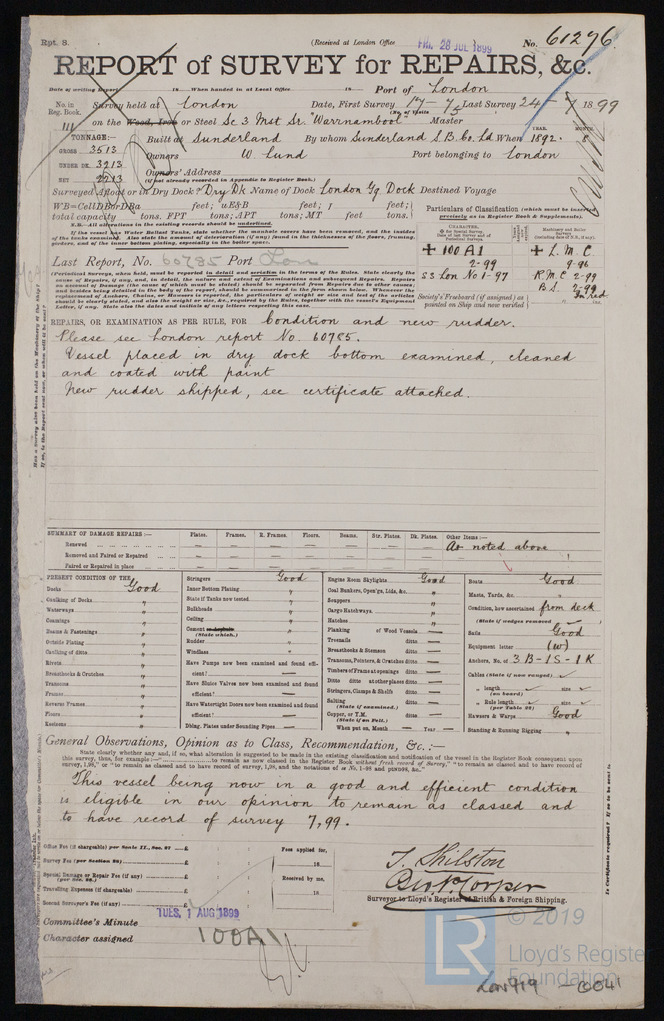 Rpt. 8.
(Received at London Office FRI. 28 JUL 1899
No. 61296
REPORT of SURVEY for REPAIRS, &c.
Date of writing Report 18 When handed in at Local Office 18 Port of London
No. in Reg. Book. Survey held at London Date, First Survey 17-7 Last Survey 24-7 1899
111 on the Wood, Iron or Steel Sc 3 Mst Sr. "Warrnambool" Master
TONNAGE:— Built at Sunderland By whom Sunderland S.B. Co. Ld When 1892.
GROSS 3513
Owners W. Lund Port belonging to London
UNDER DK. 3213
Owners' Address
NET 2213 (if not already recorded in Appendix to Register Book.)
Surveyed Afloat or in Dry Dock? Dry Dk Name of Dock London Gg. Dock Destined Voyage
total capacity tons. FPT tons; APT tons; MT feet tons.
N.B.—All alterations in the existing records should be underlined.
Particulars of Classification (which must be inserted precisely as in Register Book & Supplements).
+ 100 A1
2-99
SS Lon No 1-97
+ L. M. C
9-96
R.M.C 2-99
B.S. 2-99
In red
Society's Freeboard (if assigned) as painted on Ship and now verified
Last Report, No. 60785 Port Lon
REPAIRS, OR EXAMINATION AS PER RULE, FOR Condition and new rudder.
Please see London report No. 60785.
Vessel placed in dry dock bottom examined, cleaned
and coated with paint
New rudder shipped, see certificate attached.
SUMMARY OF DAMAGE REPAIRS:— Plates. Frames. R. Frames. Floors. Beams. Str. Plates. Dk. Plates. Other Items:—
Renewed As noted above
Removed and Faired or Repaired
Faired or Repaired in place
PRESENT CONDITION OF THE
Decks Good
Caulking of Decks "
Waterways "
Coamings "
Beams & Fastenings "
Outside Plating "
Caulking of ditto "
Rivets "
Breasthooks & Crutches "
Transoms "
Frames "
Reverse Frames "
Floors "
Keelsons "
Stringers Good
Inner Bottom Plating "
State if Tanks now tested
Bulkheads "
Ceiling "
Cement or Asphalt "
(State which.)
Rudder "
Windlass "
Have Pumps now been examined and found efficient? —
Have Sluice Valves now been examined and found efficient? —
Have Watertight Doors now been examined and found efficient? —
Dblng. Plates under Sounding Pipes —
Engine Room Skylights Good
Coal Bunkers, Open'gs, Lids, &c. "
Scuppers "
Cargo Hatchways "
Hatches "
Planking of Wood Vessels —
Treenails ditto —
Breasthooks & Stemson ditto —
Transoms, Pointers, & Crutches ditto —
Timbers of Frame at openings ditto —
Ditto ditto at other places ditto —
Stringers, Clamps & Shelfs ditto —
Salting ditto —
(State if examined.)
Copper, or Y.M. ditto —
(State if on Felt.)
When put on, Month — Year —
Boats Good
Masts, Yards, &c. "
Condition, how ascertained from deck
(State if wedges removed
Sails Good
Equipment letter (w)
Anchors, No. of 3 B - 1 S - 1 K
Cables (State if now ranged)
" length size
(on board)
" Rule length size
(per Table 22)
Hawsers & Warps Good
Standing & Running Rigging "
General Observations, Opinion as to Class, Recommendation, &c. :—
This vessel being now in a good and efficient condition
is eligible in our opinion to remain as classed and
to have record of survey 7,99.
Office Fee (if chargeable) per Scale II., Sec. 27 £
Survey Fee (per Section 28) £
Special Damage or Repair Fee (if any) £
Travelling Expenses (if chargeable) £
Second Surveyor's Fee (if any) £
Fees applied for,
18
Received by me,
18
T. Shilston
Surveyor to Lloyd's Register of British & Foreign Shipping.
Committee's Minute TUES, 1 AUG 1899
Character assigned 100A1
LR © 2019
Lloyd's Register
Foundation
Lon 919 - 0041